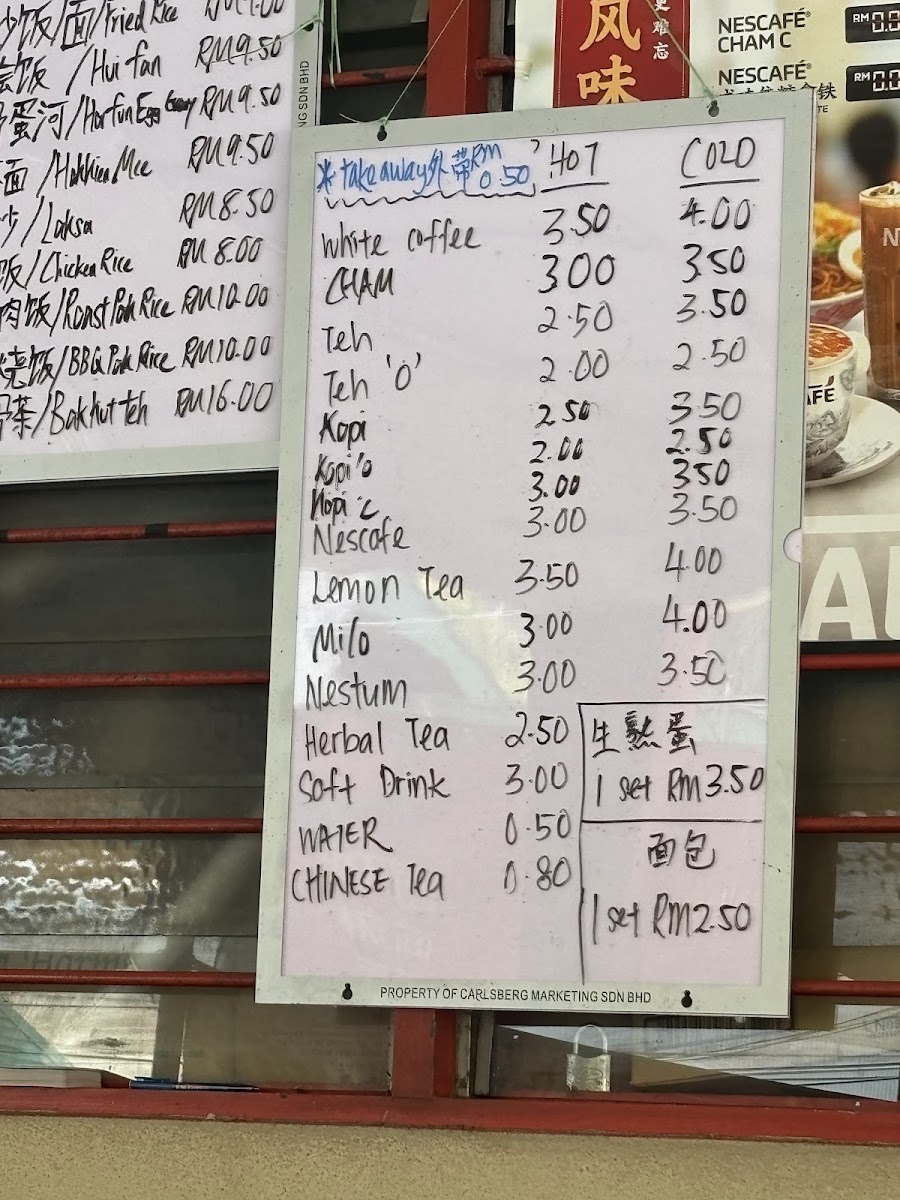 炒饭/面/Fried Rice
饭 /Hui fan RM9.50
蛋河/HorFun Egg Gravy RM9.50
面 /Hokkien Mee RM9.50
/Laksa RM8.50
饭/Chicken Rice RM 8.00
肉饭/Roast Pork Rice RM10.00
烧饭/BBQ Pork Rice RM10.00
骨茶/Bak kut teh RM16.00
NG SDN BHD
风味
更难忘
NESCAFÉ®
CHAM C
RM 0.0
NESCAFÉ®
RM 0.0
* take away外帶RM 0.50
HOT COLD
white coffee 3.50 4.00
CHAM 3.00 3.50
Teh 2.50 3.50
Teh 'O' 2.00 2.50
Kopi 2.50 3.50
Kopi'o 2.00 2.50
Kopi 'c 3.00 3.50
Nescafe 3.00 3.50
Lemon Tea 3.50 4.00
Milo 3.00 4.00
Nestum 3.00 3.50
Herbal Tea 2.50
Soft Drink 3.00
WATER 0.50
CHINESE Tea 0.80
生熟蛋
1 set RM3.50
面包
1 set RM2.50
PROPERTY OF CARLSBERG MARKETING SDN BHD